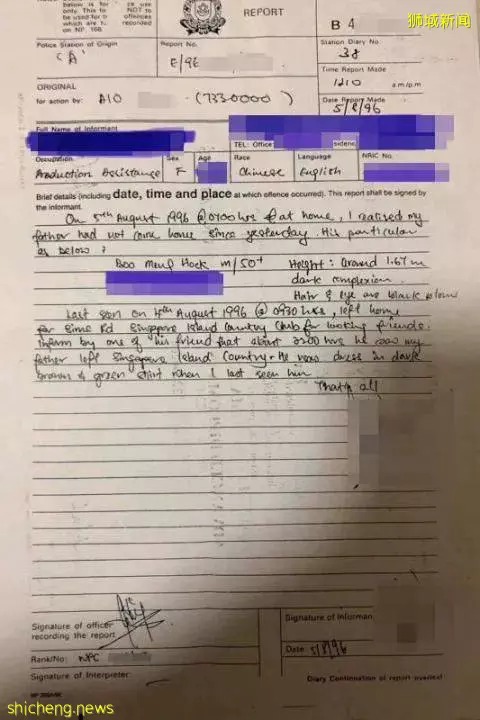 狮城新闻
below is for
use
only. This fo
NOT to
be used for t
offences
which are re
ded
on NP. 168.
REPORT
B 4
Police Station of Origin
Report No.
Station Diary No
'A'
E/96
38
Time Report Made
ORIGINAL
1210
a.m/p.m
for action by: AIO
(7330000)
Date Report Made
5/8/96
Full Name of Informant
TEL: Office:
sidenc
Occupation
Sex
Age
Race
Language
NRIC No.
Production Assistance
F
Chinese
English
Brief details (including date, time and place at which offence occurred). This report shall be signed by
the informant.
On 5th August 1996 @ 0700 hrs @ at home, I realised my
father had not come home since yesterday. His particular
as below:
Boo Meng Hock m/50+
Height: around 1.67m
dark complexion
Hair & eye are black colour
Last seen on 4th August 1996 @ 0930 hrs, left home
for Sime Rd Singapore Island Country Club for looking friends.
Inform by one of his friend that about 0200 hrs he saw my
father left Singapore Island Country. He was dress in dark
brown & green shirt when I last seen him
That's all
Signature of officer
recording the report
Signature of Informan
Rank/No: NPC
Date: 5/8/96
Signature of Interpreter:
Diary Continuation of report overleaf
shicheng.news